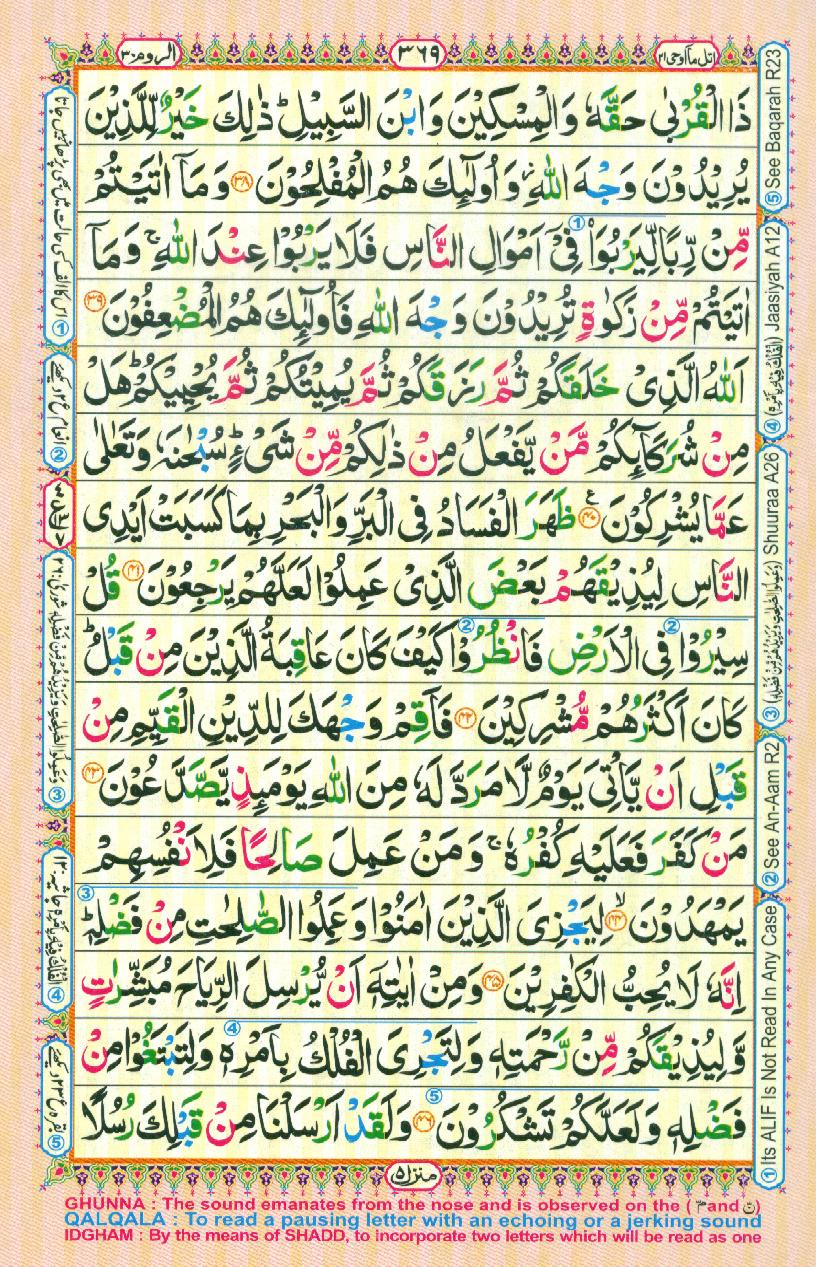 الروم ٣٠
٣٦٩
اتل ما اوحی ٢١
ذَا الْقُرْبٰى حَقَّهٗ وَالْمِسْكِيْنَ وَابْنَ السَّبِيْلِ ؕ ذٰلِكَ خَيْرٌ لِّلَّذِيْنَ
يُرِيْدُوْنَ وَجْهَ اللّٰهِ ؗ وَاُولٰٓئِكَ هُمُ الْمُفْلِحُوْنَ ﴿٣٨﴾ وَمَاۤ اٰتَيْتُمْ
مِّنْ رِّبًا لِّيَرْبُوَا۟ ① فِىْۤ اَمْوَالِ النَّاسِ فَلَا يَرْبُوْا عِنْدَ اللّٰهِ ۚ وَمَاۤ
اٰتَيْتُمْ مِّنْ زَكٰوةٍ تُرِيْدُوْنَ وَجْهَ اللّٰهِ فَاُولٰٓئِكَ هُمُ الْمُضْعِفُوْنَ ﴿٣٩﴾
اَللّٰهُ الَّذِىْ خَلَقَكُمْ ثُمَّ رَزَقَكُمْ ثُمَّ يُمِيْتُكُمْ ثُمَّ يُحْيِيْكُمْ ؕ هَلْ
مِنْ شُرَكَآئِكُمْ مَّنْ يَّفْعَلُ مِنْ ذٰلِكُمْ مِّنْ شَىْءٍ ؕ سُبْحٰنَهٗ وَتَعٰلٰى
عَمَّا يُشْرِكُوْنَ ﴿٤٠﴾ ظَهَرَ الْفَسَادُ فِى الْبَرِّ وَالْبَحْرِ بِمَا كَسَبَتْ اَيْدِى
النَّاسِ لِيُذِيْقَهُمْ بَعْضَ الَّذِىْ عَمِلُوْا لَعَلَّهُمْ يَرْجِعُوْنَ ﴿٤١﴾ قُلْ
سِيْرُوْا ② فِى الْاَرْضِ فَانْظُرُوْا ② كَيْفَ كَانَ عَاقِبَةُ الَّذِيْنَ مِنْ قَبْلُ ؕ
كَانَ اَكْثَرُهُمْ مُّشْرِكِيْنَ ﴿٤٢﴾ فَاَقِمْ وَجْهَكَ لِلدِّيْنِ الْقَيِّمِ مِنْ
قَبْلِ اَنْ يَّاْتِىَ يَوْمٌ لَّا مَرَدَّ لَهٗ مِنَ اللّٰهِ يَوْمَئِذٍ يَّصَّدَّعُوْنَ ﴿٤٣﴾
مَنْ كَفَرَ فَعَلَيْهِ كُفْرُهٗ ۚ وَمَنْ عَمِلَ صَالِحًا فَلِاَنْفُسِهِمْ
يَمْهَدُوْنَ ۙ﴿٤٤﴾ لِيَجْزِىَ الَّذِيْنَ اٰمَنُوْا وَعَمِلُوا الصّٰلِحٰتِ مِنْ فَضْلِهٖ ؕ ③
اِنَّهٗ لَا يُحِبُّ الْكٰفِرِيْنَ ﴿٤٥﴾ وَمِنْ اٰيٰتِهٖۤ اَنْ يُّرْسِلَ الرِّيَاحَ مُبَشِّرٰتٍ
وَّلِيُذِيْقَكُمْ مِّنْ رَّحْمَتِهٖ وَلِتَجْرِىَ الْفُلْكُ ④ بِاَمْرِهٖ وَلِتَبْتَغُوْا مِنْ
فَضْلِهٖ وَلَعَلَّكُمْ تَشْكُرُوْنَ ﴿٤٦﴾ ⑤ وَلَقَدْ اَرْسَلْنَا مِنْ قَبْلِكَ رُسُلًا
منزل ٥
① Its ALIF Is Not Read In Any Case
② See An-Aam R2
③ Shuuraa A26
④ Jaasiyah A12
⑤ See Baqarah R23
GHUNNA : The sound emanates from the nose and is observed on the ( م and ن )
QALQALA : To read a pausing letter with an echoing or a jerking sound
IDGHAM : By the means of SHADD, to incorporate two letters which will be read as one